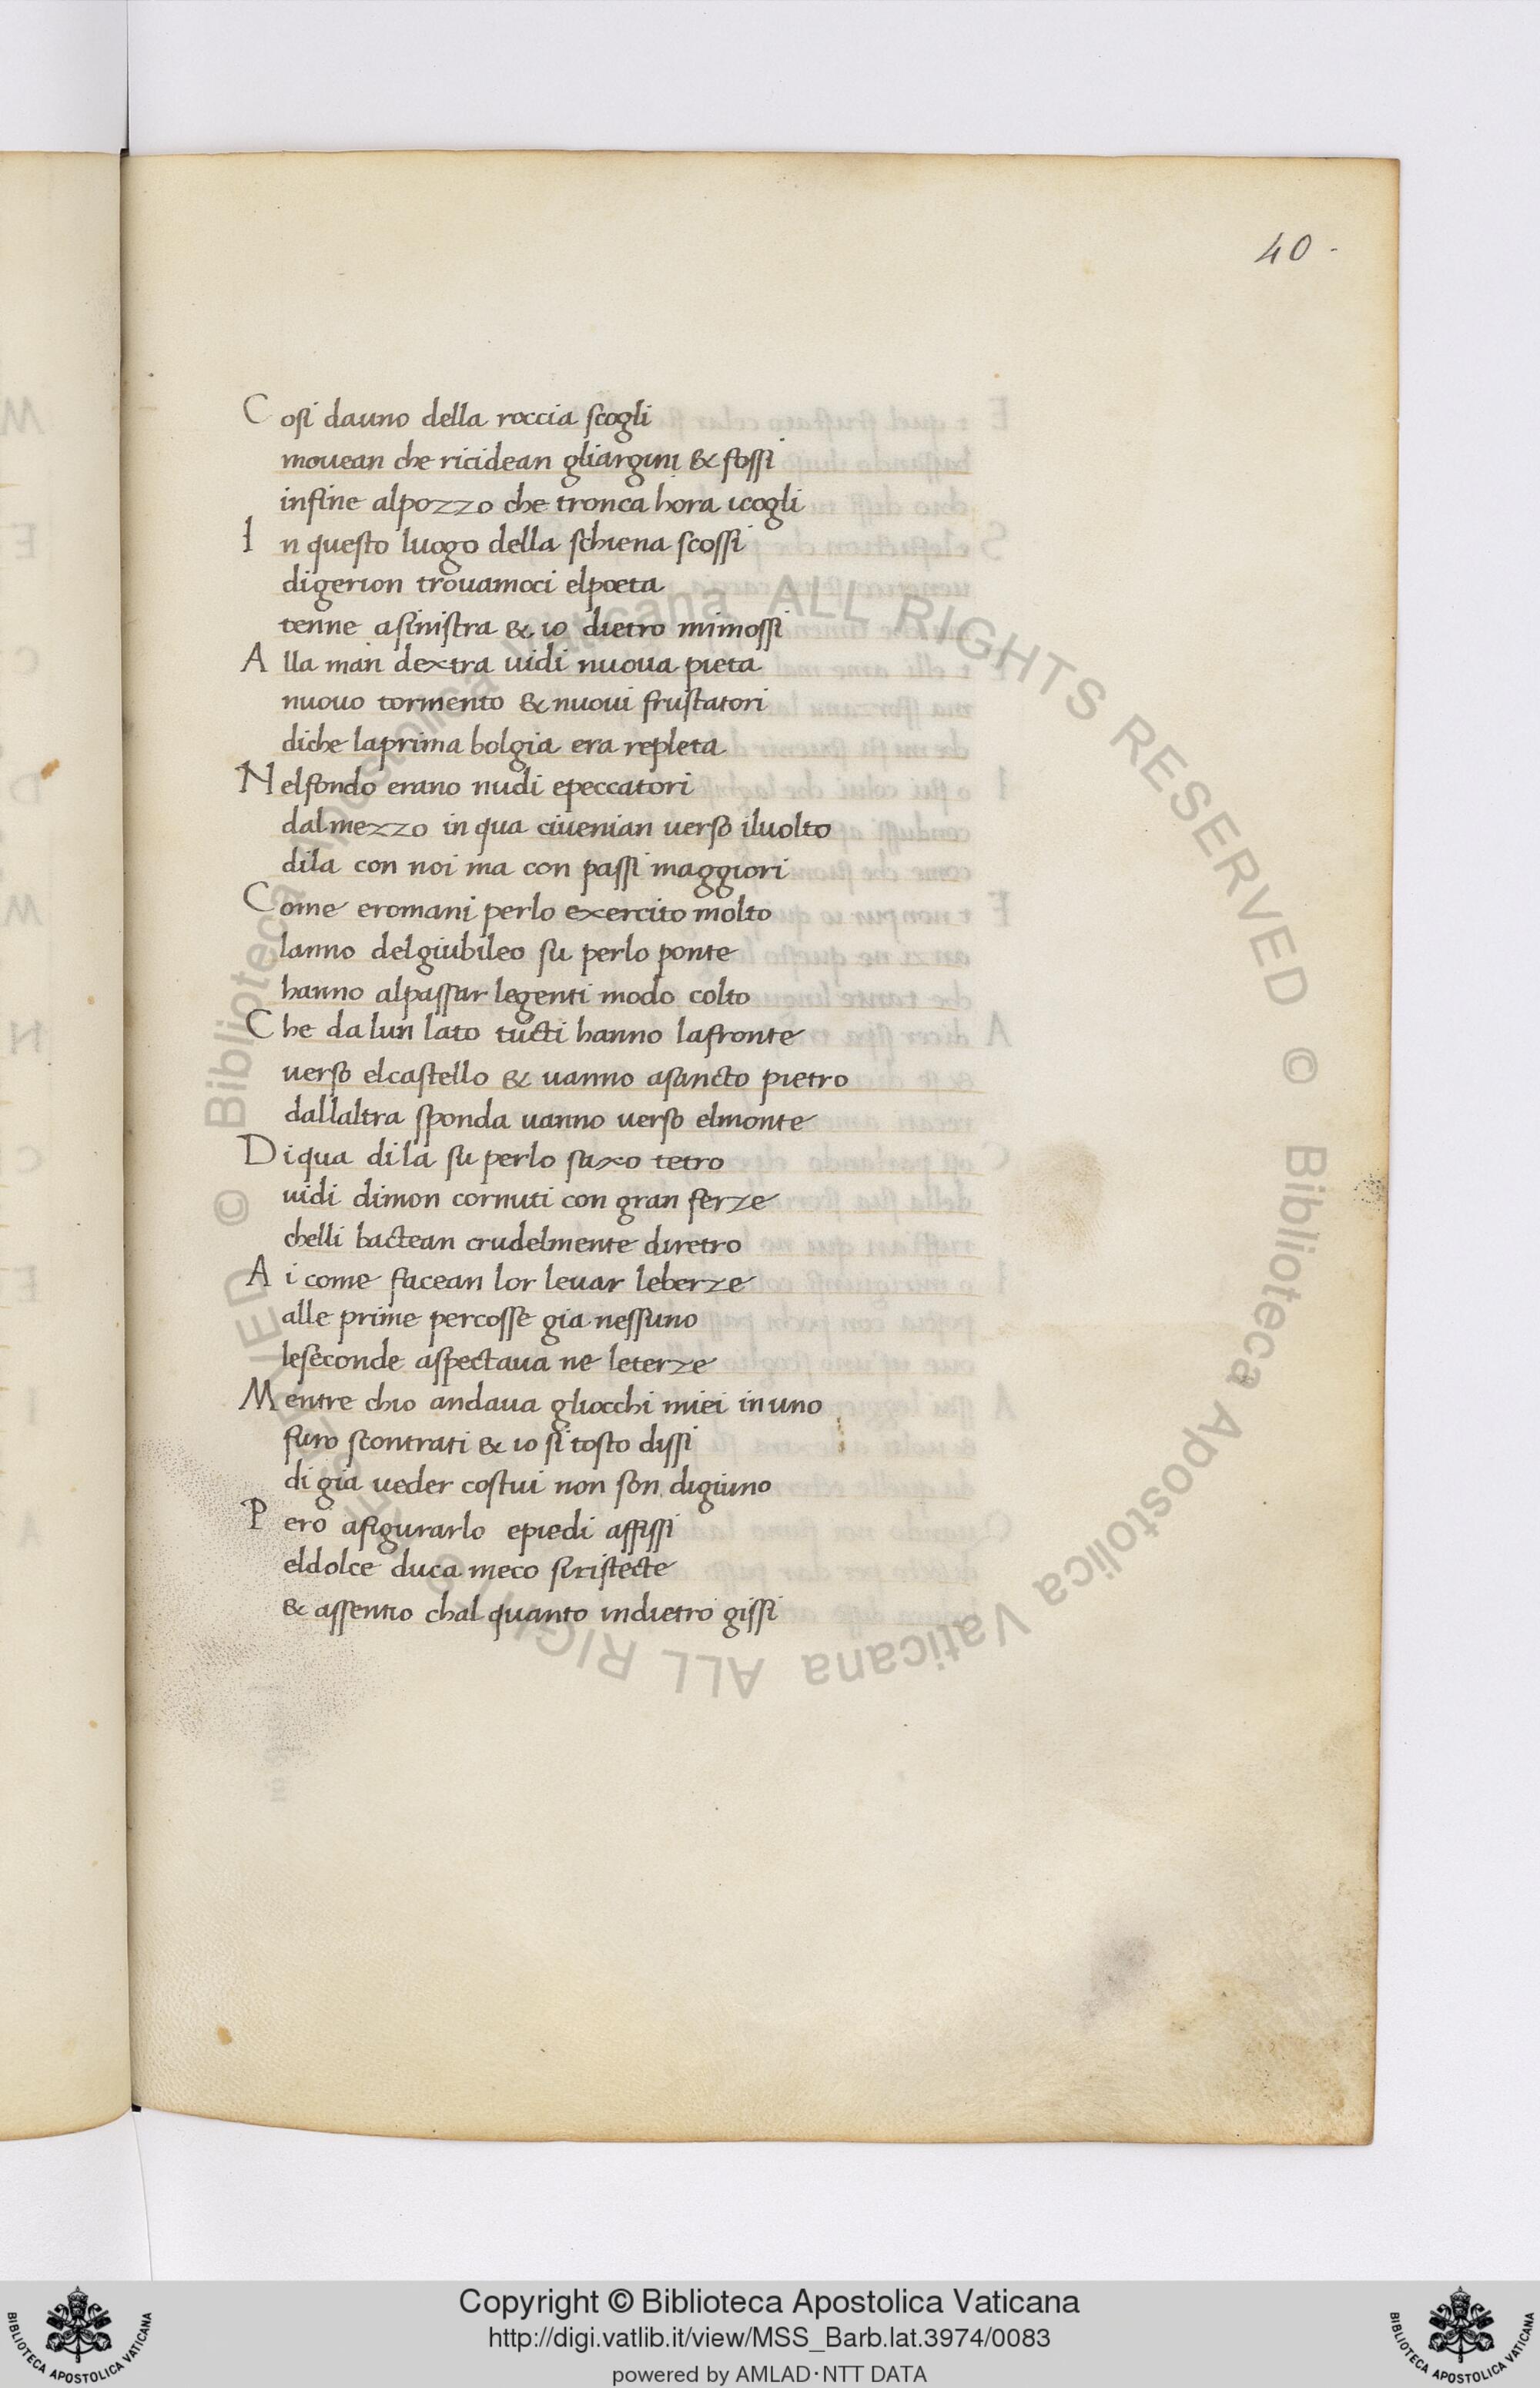 40 -
Cosi dauno della roccia scogli
mouean che ricidean gliargini & fossi
infine alpozzo che tronca hora icogli
In questo luogo della schiena scossi
digerion trouamoci elpoeta
tenne asinistra & io dietro mimossi
Alla man dextra uidi nuoua pieta
nuouo tormento & nuoui frustatori
diche laprima bolgia era repleta
Nelfondo erano nudi epeccatori
dalmezzo in qua ciuenian uerso iluolto
dila con noi ma con passi maggiori
Come eromani perlo exercito molto
lanno delgiubileo su perlo ponte
hanno alpassar legenti modo colto
Che da lun lato tucti hanno lafronte
uerso elcastello & uanno asancto pietro
dallaltra sponda uanno uerso elmonte
Di qua di la su perlo saxo tetro
uidi dimon cornuti con gran ferze
chelli bactean crudelmente diretro
Ai come facean lor leuar leberze
alle prime percosse gia nessuno
leseconde aspectaua ne leterze
Mentre chio andaua gliocchi miei in uno
furo scontrati & io si tosto dissi
di gia ueder costui non son digiuno
Pero afigurarlo epiedi affissi
eldolce duca meco siristecte
& assentio chal quanto indietro gissi
© Biblioteca Apostolica Vaticana ALL RIGHTS RESERVED © Biblioteca Apostolica Vaticana ALL RIGHTS RESERVED
BIBLIOTECA APOSTOLICA VATICANA
Copyright © Biblioteca Apostolica Vaticana
http://digi.vatlib.it/view/MSS_Barb.lat.3974/0083
powered by AMLAD·NTT DATA
BIBLIOTECA APOSTOLICA VATICANA